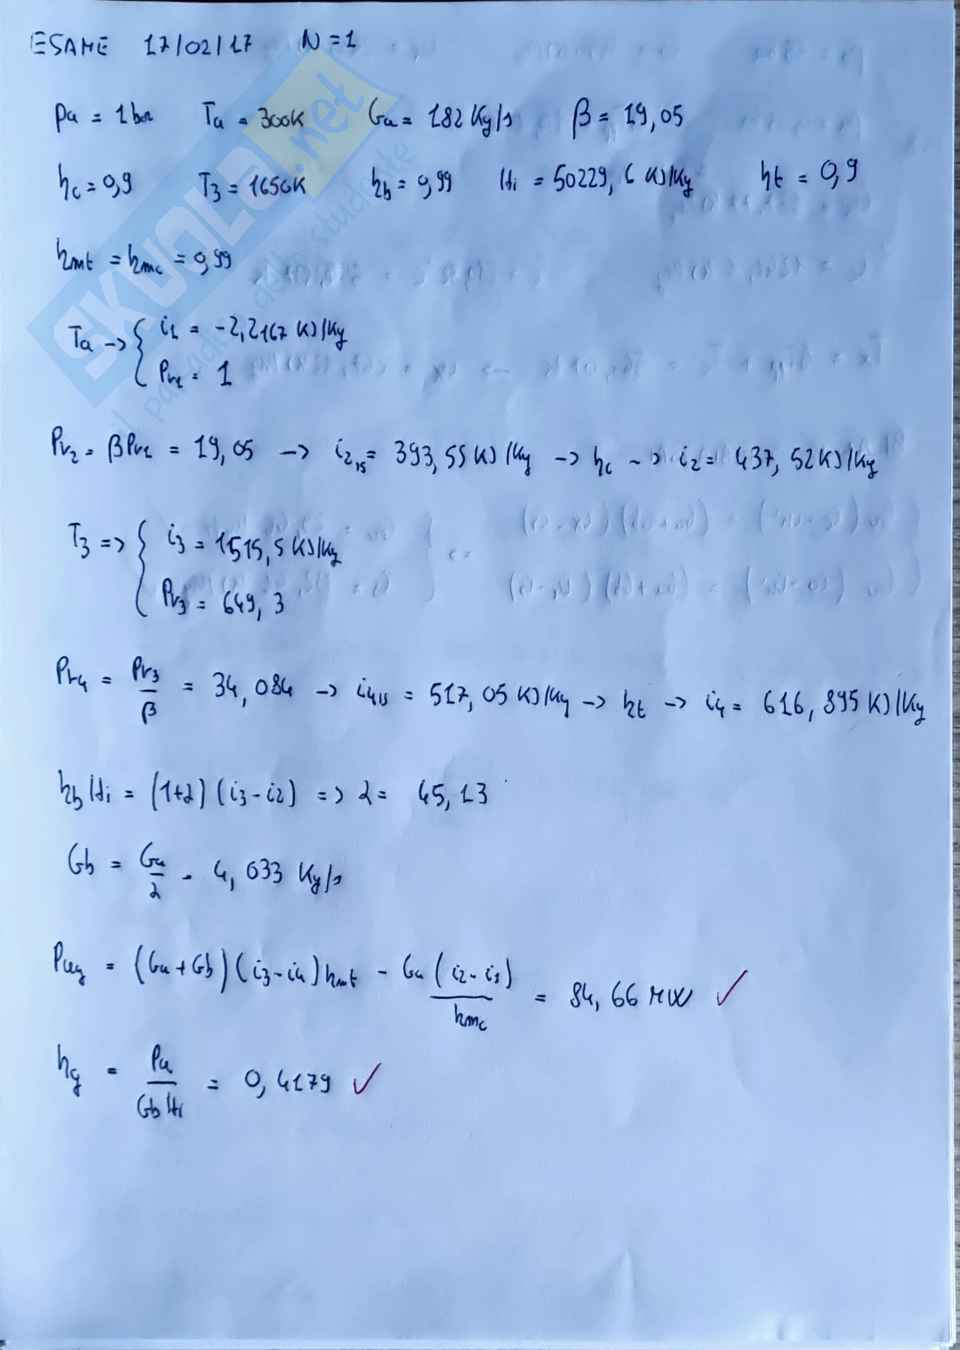 ESAME 17/02/17 N=1
pa = 1 bar Ta = 300K Ga = 182 Kg/s β = 19,05
ηc = 0,9 T3 = 1656K ηb = 0,99 Hi = 50229,6 KJ/Kg ηt = 0,9
ηmt = ηmc = 0,99
Ta -> { i1 = -2,2167 KJ/Kg
Pr1 = 1
Pr2 = βPr1 = 19,05 -> i2is = 393,55 KJ/Kg -> ηc -> i2 = 437,52 KJ/Kg
T3 => { i3 = 1515,5 KJ/Kg
Pr3 = 649,3
Pr4 = Pr3/β = 34,084 -> i4is = 517,05 KJ/Kg -> ηt -> i4 = 616,895 KJ/Kg
ηb Hi = (1+α)(i3-i2) => α = 45,13
Gb = Ga/α = 4,033 Kg/s
Pug = (Ga+Gb)(i3-i4)ηmt - Ga(i2-i1)/ηmc = 84,66 MW ✓
ηg = Pu/Gb Hi = 0,4179 ✓
SKUOLA.net